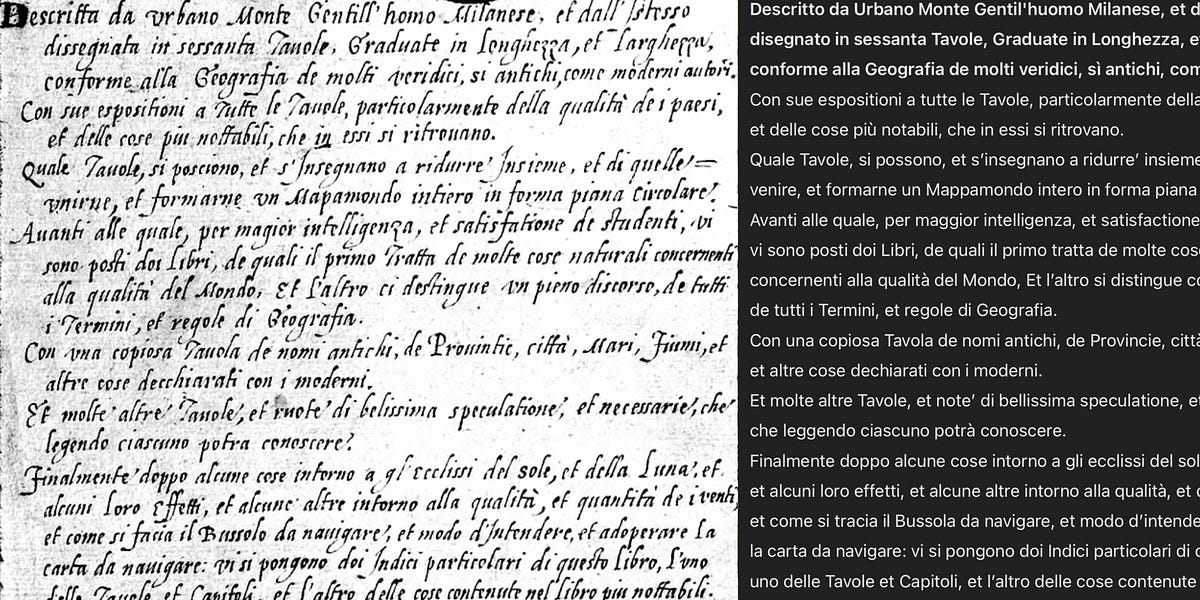 Descritta da Vrbano Monte Gentill'homo Milanese, et dall'Istesso
dissegnata in sessanta Tauole, Graduate in Longhezza, et Larghezza,
conforme alla Geografia de molti veridici, si antichi, come moderni autori.
Con sue espositioni a Tutte le Tauole, particolarmente della qualità de i paesi,
et delle cose piu nottabili, che in essi si ritrouano.
Quale Tauole, si posciono, et s'Insegnano a ridurre Insieme, et di quelle
vnirne, et formarne vn Mapamondo intiero in forma piana Circolare.
Auanti alle quale, per magior intelligenza, et satisfatione de studenti, vi
sono posti doi Libri, de quali il primo Tratta de molte cose naturali concernenti
alla qualità del Mondo, Et l'altro ci destingue vn pieno discorso, de tutti
i Termini, et regole di Geografia.
Con vna copiosa Tauola de nomi antichi, de Prouintie, città, Mari, Fiumi, et
altre cose decchiarati con i moderni.
Et molte altre Tauole, et ruote di belissima speculatione, et necessarie, che
legendo ciascuno potra conoscere.
Finalmente doppo alcune cose intorno a gl'Ecclissi del sole, et della Luna, et
alcuni loro Effetti, et alcune altre intorno alla qualità, et quantità de i venti,
et come si facia il Bussolo da nauigare, et modo d'Intendere, et adoperare la
carta da nauigare: vi si pongono doi Indici particolari di questo Libro, l'vno
delle Tauole et Capitoli, et l'altro delle cose contenute nel libro piu nottabili.
Descritto da Urbano Monte Gentil'huomo Milanese, et d
disegnato in sessanta Tavole, Graduate in Longhezza, e
conforme alla Geografia de molti veridici, sì antichi, com
Con sue espositioni a tutte le Tavole, particolarmente della
et delle cose più notabili, che in essi si ritrovano.
Quale Tavole, si possono, et s'insegnano a ridurre' insieme
venire, et formarne un Mappamondo intero in forma piana
Avanti alle quale, per maggior intelligenza, et satisfactione
vi sono posti doi Libri, de quali il primo tratta de molte cos
concernenti alla qualità del Mondo, Et l'altro si distingue co
de tutti i Termini, et regole di Geografia.
Con una copiosa Tavola de nomi antichi, de Provincie, citt
et altre cose dechiarati con i moderni.
Et molte altre Tavole, et note' di bellissima speculatione, et
che leggendo ciascuno potrà conoscere.
Finalmente doppo alcune cose intorno a gli ecclissi del sol
et alcuni loro effetti, et alcune altre intorno alla qualità, et
et come si tracia il Bussola da navigare, et modo d'intende
la carta da navigare: vi si pongono doi Indici particolari di
uno delle Tavole et Capitoli, et l'altro delle cose contenute